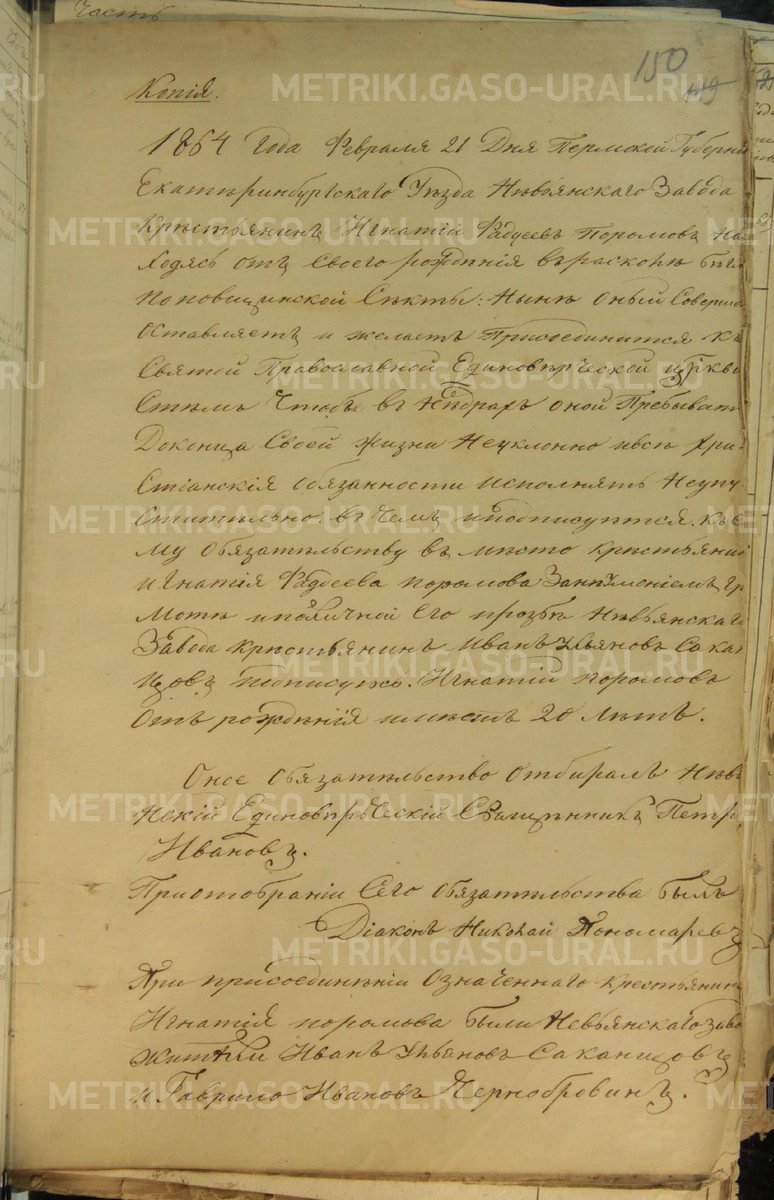 Часть
150
119
Копія.
1864 Года Февраля 21 Дня Пермской Губерніи
Екатѣринбургскаго Уѣзда Нѣвьянскаго Завода
Крѣстьянинъ Игнатій Фадѣевъ Поромовъ На
Ходясь отъ Своего рождѣнія въ расколѣ бѣгло
поповщинской Сѣкты: Нынѣ оный Соверше
оставляетъ и желаетъ Присоединится къ
Святой Православной Единовѣрческой церкви
Стѣмъ Чтобъ въ Нѣдрахъ оной Пребывать
Доконца Своей жизни Неуклонно ивсѣ Хри
Стіанскія обязанности исполнять Неупу
Стительно. въ Чемъ иподписуется. Къ се
му обязательству въ мѣсто крѣстьянин
игнатія Фадѣева поромова Занеумѣніемъ гр
Мотѣ иполичной Его прозьбѣ Нѣвьянскаго
Завода крѣстьянинъ Иванъ Ульяновъ Сакан
цовъ подписуюсь. Игнатій поромовъ
отъ рождѣнія имѣетъ 20 лѣтъ.
Оное обязательство отбиралъ Нѣвь
Нскій Единовѣрческій Священникъ Петръ
Ивановъ.
Приотобраніи Сего обязательства былъ
Діаконъ Николай Пономаревъ
При присоединѣніи означеннаго крестьянина
Игнатія поромова были Невьянскаго заво
жители Иванъ Ульяновъ Саканцовъ
и Гаврило Ивановъ Чернобровинъ.
METRIKI.GASO-URAL.RU